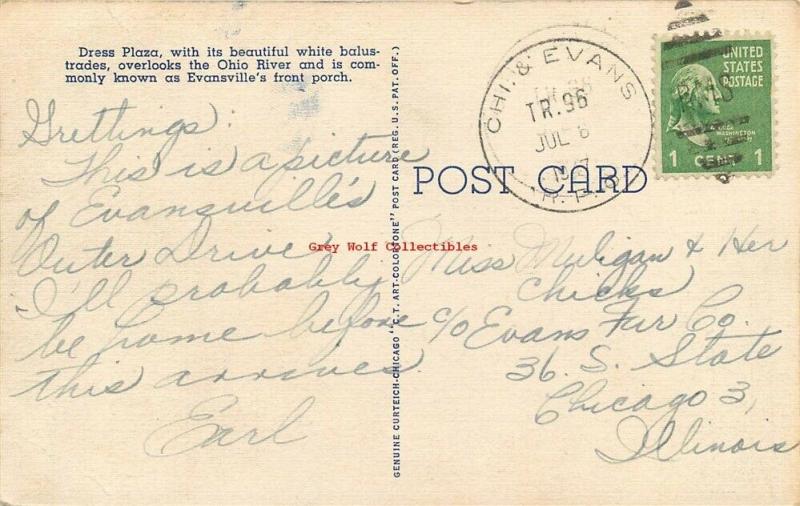 Dress Plaza, with its beautiful white balus-
trades, overlooks the Ohio River and is com-
monly known as Evansville's front porch.
Grettings:
This is a picture
of Evansville's
Outer Drive
I'll probably
be home before
this arrives.
Earl
GENUINE CURTEICH-CHICAGO "C.T. ART-COLORTONE" POST CARD (REG. U.S. PAT. OFF.)
POST CARD
CHI. & EVANS
TR. 96
JUL 6
1947
R.P.O.
UNITED
STATES
POSTAGE
WASHINGTON
1 CENT 1
Grey Wolf Collectibles
Miss Muligan & Her
Chicks
c/o Evans Fur Co.
36 S. State
Chicago 3,
Illinois